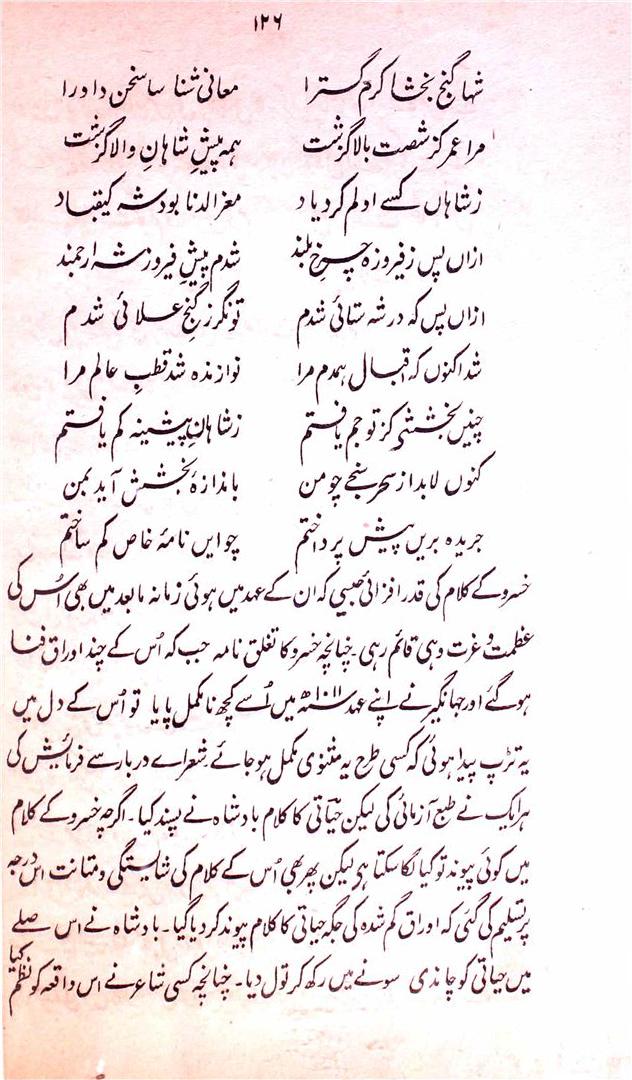 ۱۲۶
شہا گنج بخشا کرم گسترا معانی شناسا سخن داورا
مرا عمر کز شصت بالا گزشت ہمہ پیشِ شاہانِ والا گزشت
ز شاہاں کسے اولم کرد یاد معزالدنا بود شہ کیقباد
ازاں پس ز فیروزہ چرخِ بلند شدم پیشِ فیروز شہ ارجمند
ازاں پس کہ در شہ ستائی شدم تونگر ز گنجِ علائی شدم
شد اکنوں کہ اقبال ہمدم مرا نوازندہ شد قطبِ عالم مرا
چنیں بخششے کز تو جم یافتم ز شاہانِ پیشینہ کم یافتم
کنوں لابد از سحر سنجے چو من باندازہ بخشش آید بمن
جریدہ بریں پیش پرداختم چو ایں نامۂ خاص کم ساختم
خسرو کے کلام کی قدر افزائی جیسی کہ ان کے عہد میں ہوئی زمانہ مابعد میں بھی اُس کی
عظمت و عزت وہی قائم رہی۔ چنانچہ خسرو کا تغلق نامہ جب کہ اُس کے چند اوراق فنا
ہوگئے اور جہانگیر نے اپنے عہد سنہ ۱۰۱۱ھ میں اُسے کچھ نامکمل پایا تو اُس کے دل میں
یہ تڑپ پیدا ہوئی کہ کسی طرح یہ مثنوی مکمل ہوجائے شعراے دربار سے فرمائش کی
ہر ایک نے طبع آزمائی کی لیکن حیاتی کا کلام بادشاہ نے پسند کیا۔ اگرچہ خسرو کے کلام
میں کوئی پیوند تو کیا لگا سکتا ہی لیکن پھر بھی اُس کے کلام کی شایستگی و متانت اس درجہ
پر تسلیم کی گئی کہ اوراق گم شدہ کی جگہ حیاتی کا کلام پیوند کردیا گیا۔ بادشاہ نے اس صلے
میں حیاتی کو چاندی سونے میں رکھ کر تول دیا۔ چنانچہ کسی شاعر نے اس واقعہ کو نظم کیا